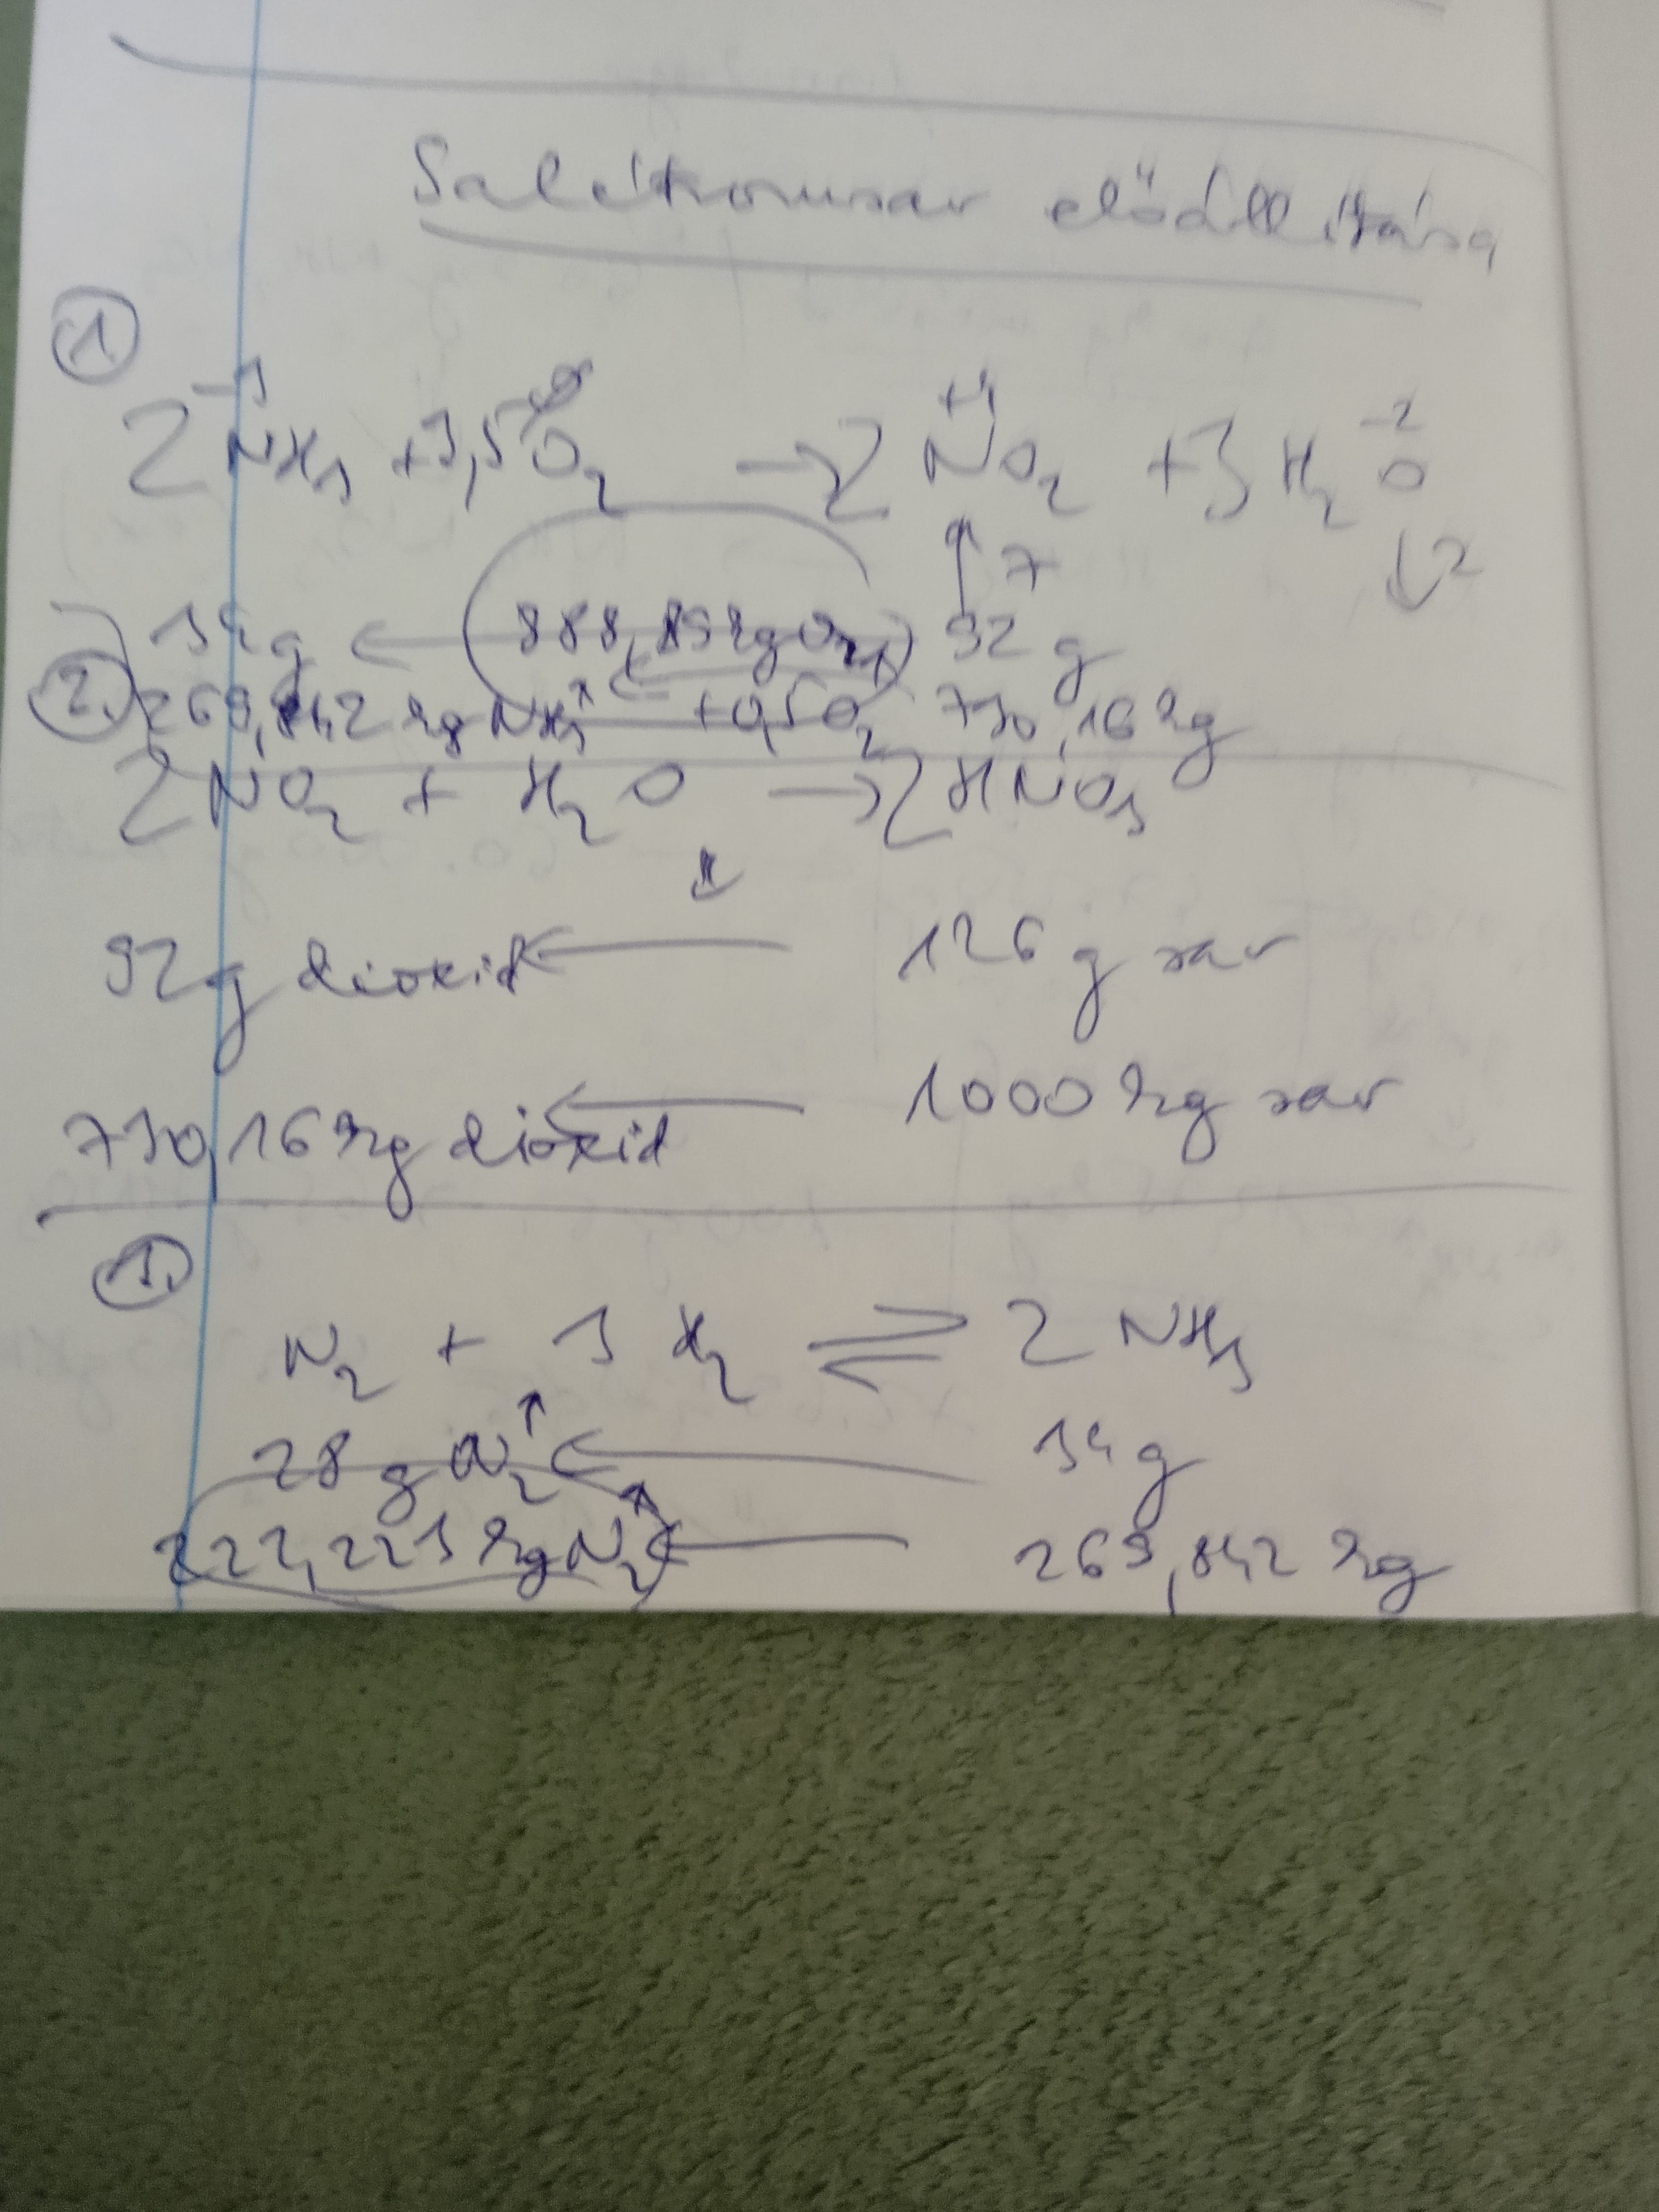 Salétromsav előállítása
1.
-3 0 +4 -2
2 NH3 + 3,5 O2 → 2 NO2 + 3 H2O
↑ 7 ↓ 2
34 g ← 888,89 kg O2 92 g
2. 269,842 kg NH3 ← + 0,5 O2 730,16 kg
2 NO2 + H2O → 2 HNO3
92 g dioxid ← 126 g sav
730,16 kg dioxid ← 1000 kg sav
3.
N2 + 3 H2 ⇌ 2 NH3
28 g N2 ↑ ← 34 g
222,223 kg N2 ↑ ← 269,842 kg